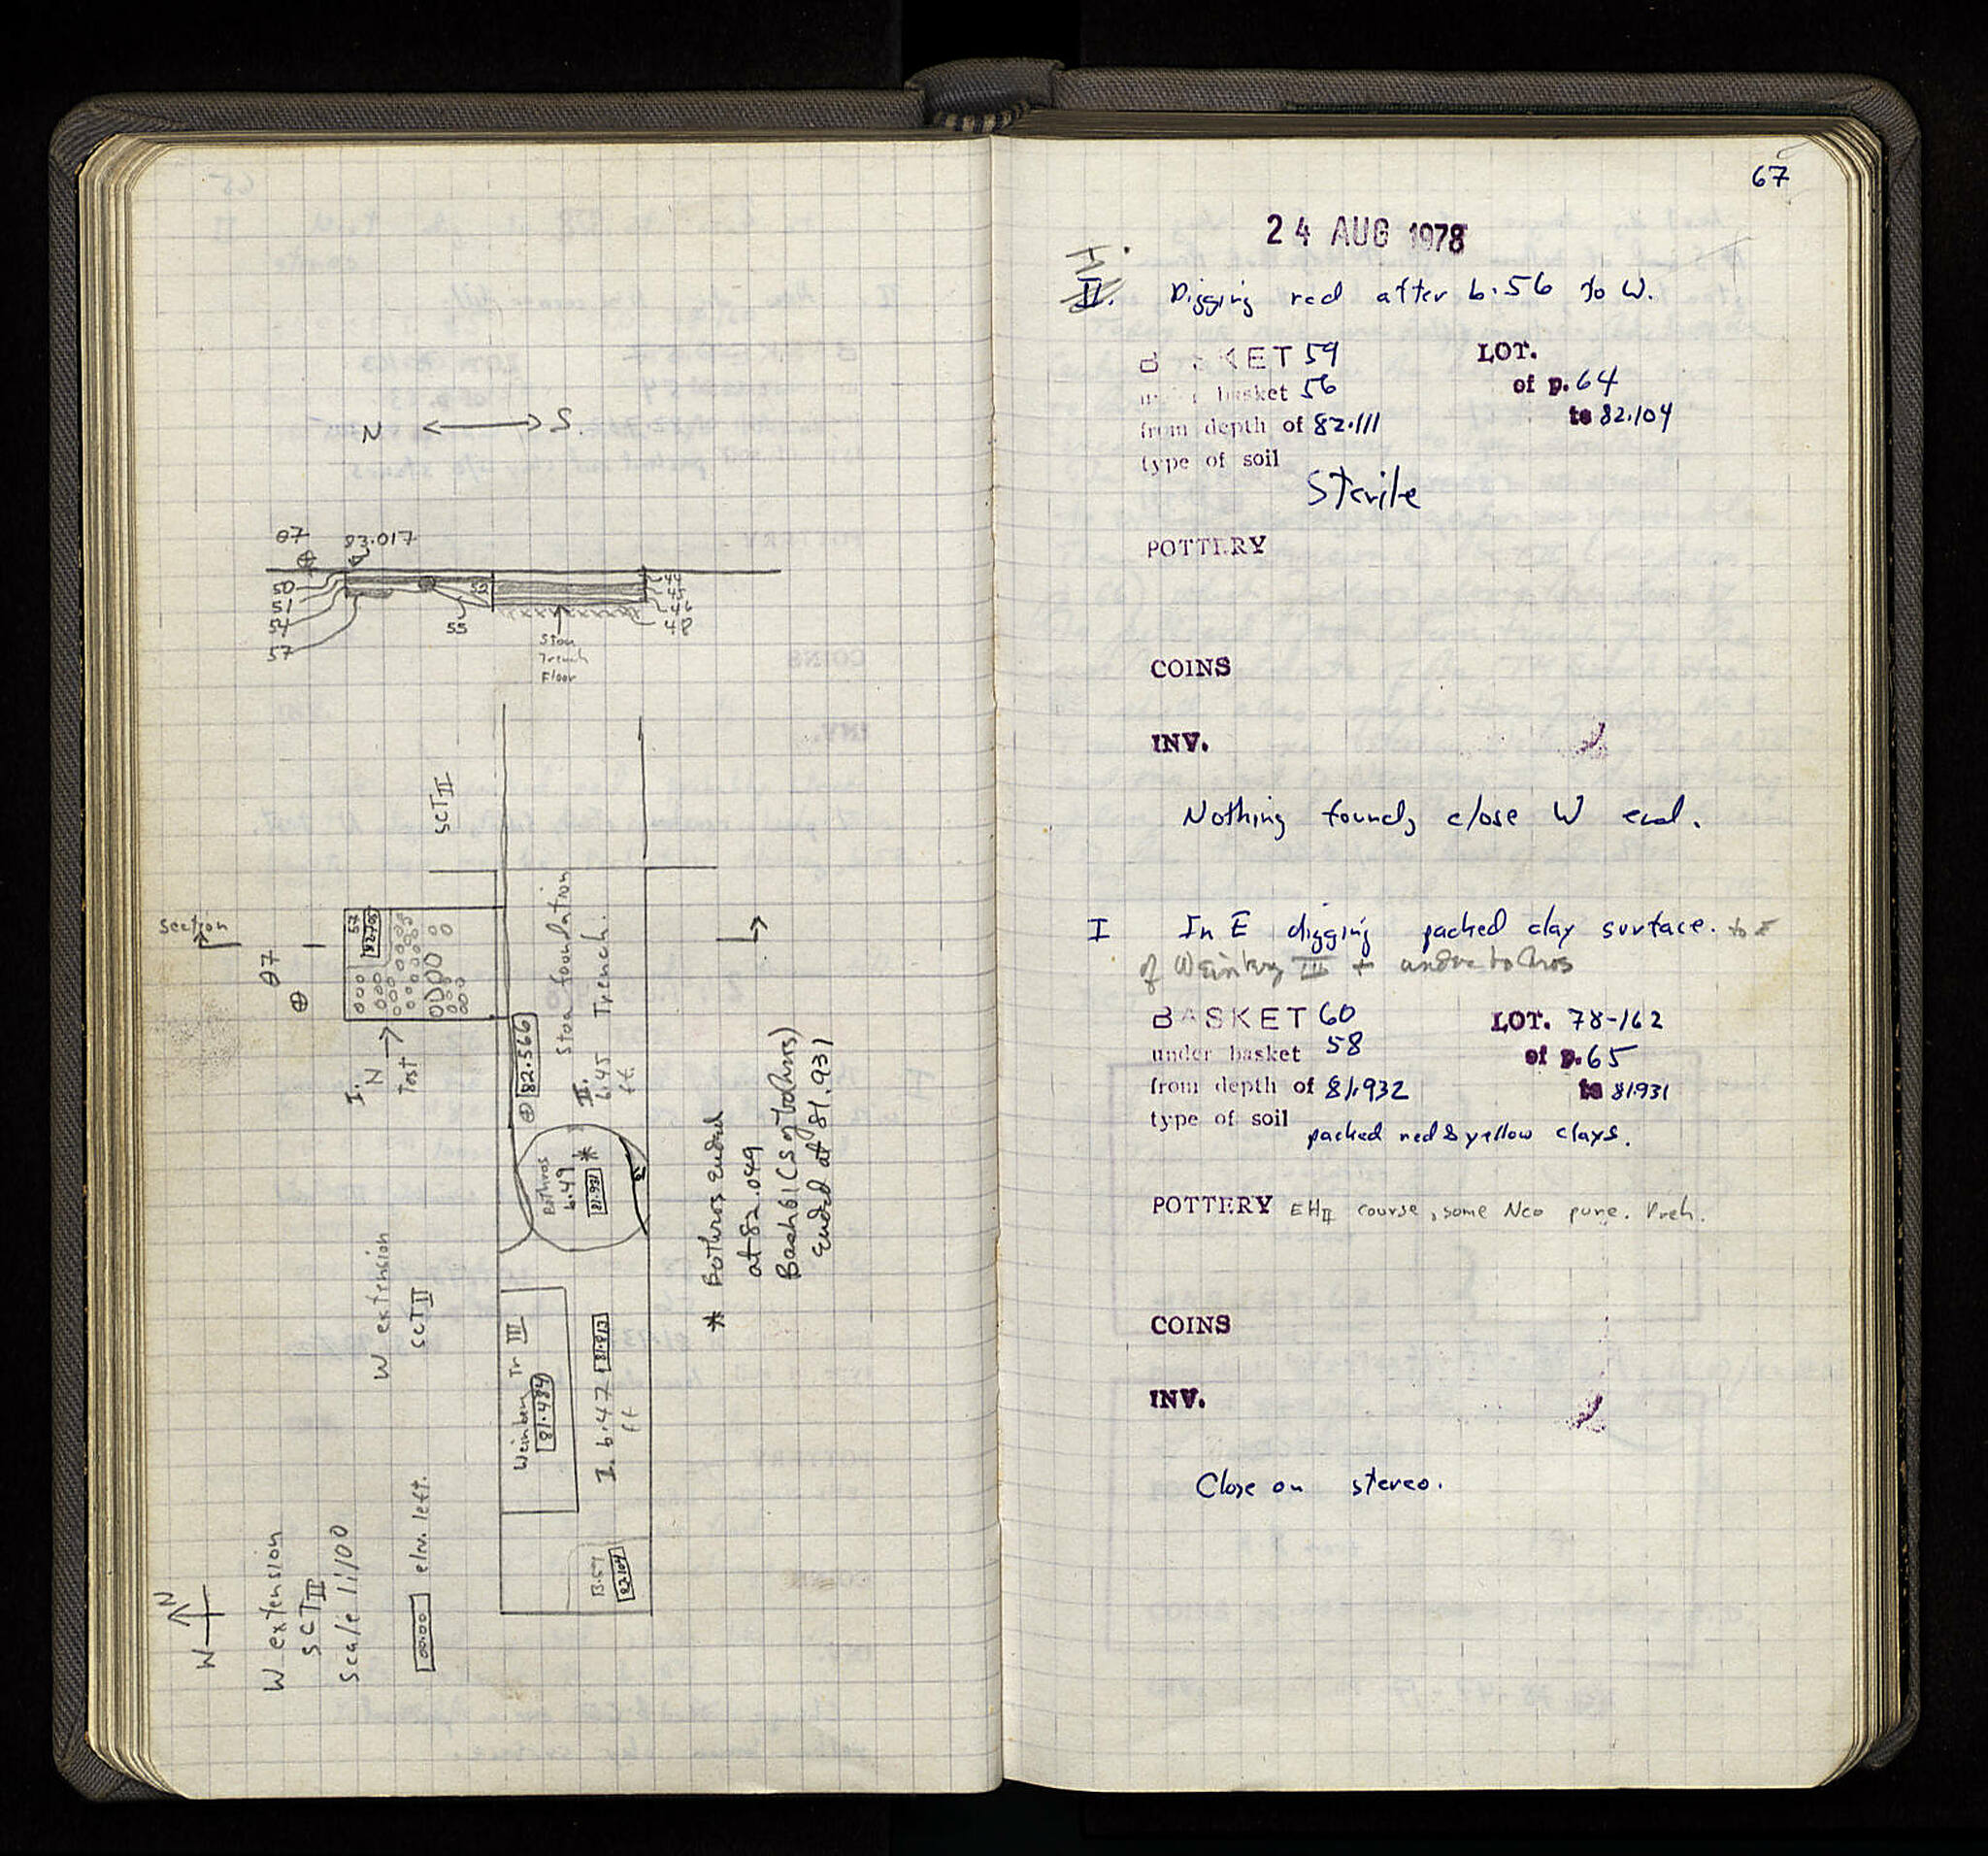 N ⟷ S.
θ7
83.017
50
51
54
57
52
55
46
48
Stoa
Trench
Floor
SCT II
Section
θ7
57
I.
N
Test
Stoa foundation
II. Trench.
b.45
ft.
82.566
Bothros
b.49
81.931
*
* Bothros ended
at 82.049
Bask 61 (S of bothros)
ended at 81.931
W extension
SCT II
Weinberg Tr III
81.484
I. b.47 81.813
ft
B.59
82.104
N
W
W extension
SCT II
Scale 1:100
00.00 elev. left.
67
24 AUG 1978
II. Digging red after b.56 to W.
BASKET 59 LOT.
under basket 56 of p. 64
from depth of 82.111 to 82.104
type of soil
Sterile
POTTERY
COINS
INV.
Nothing found, close W end.
I In E digging packed clay surface. to E
of Weinberg III + under bothros
BASKET 60 LOT. 78-162
under basket 58 of p. 65
from depth of 81.932 to 81.931
type of soil packed red & yellow clays.
POTTERY EH II course, some Neo pure. Preh.
COINS
INV.
Close on stereo.